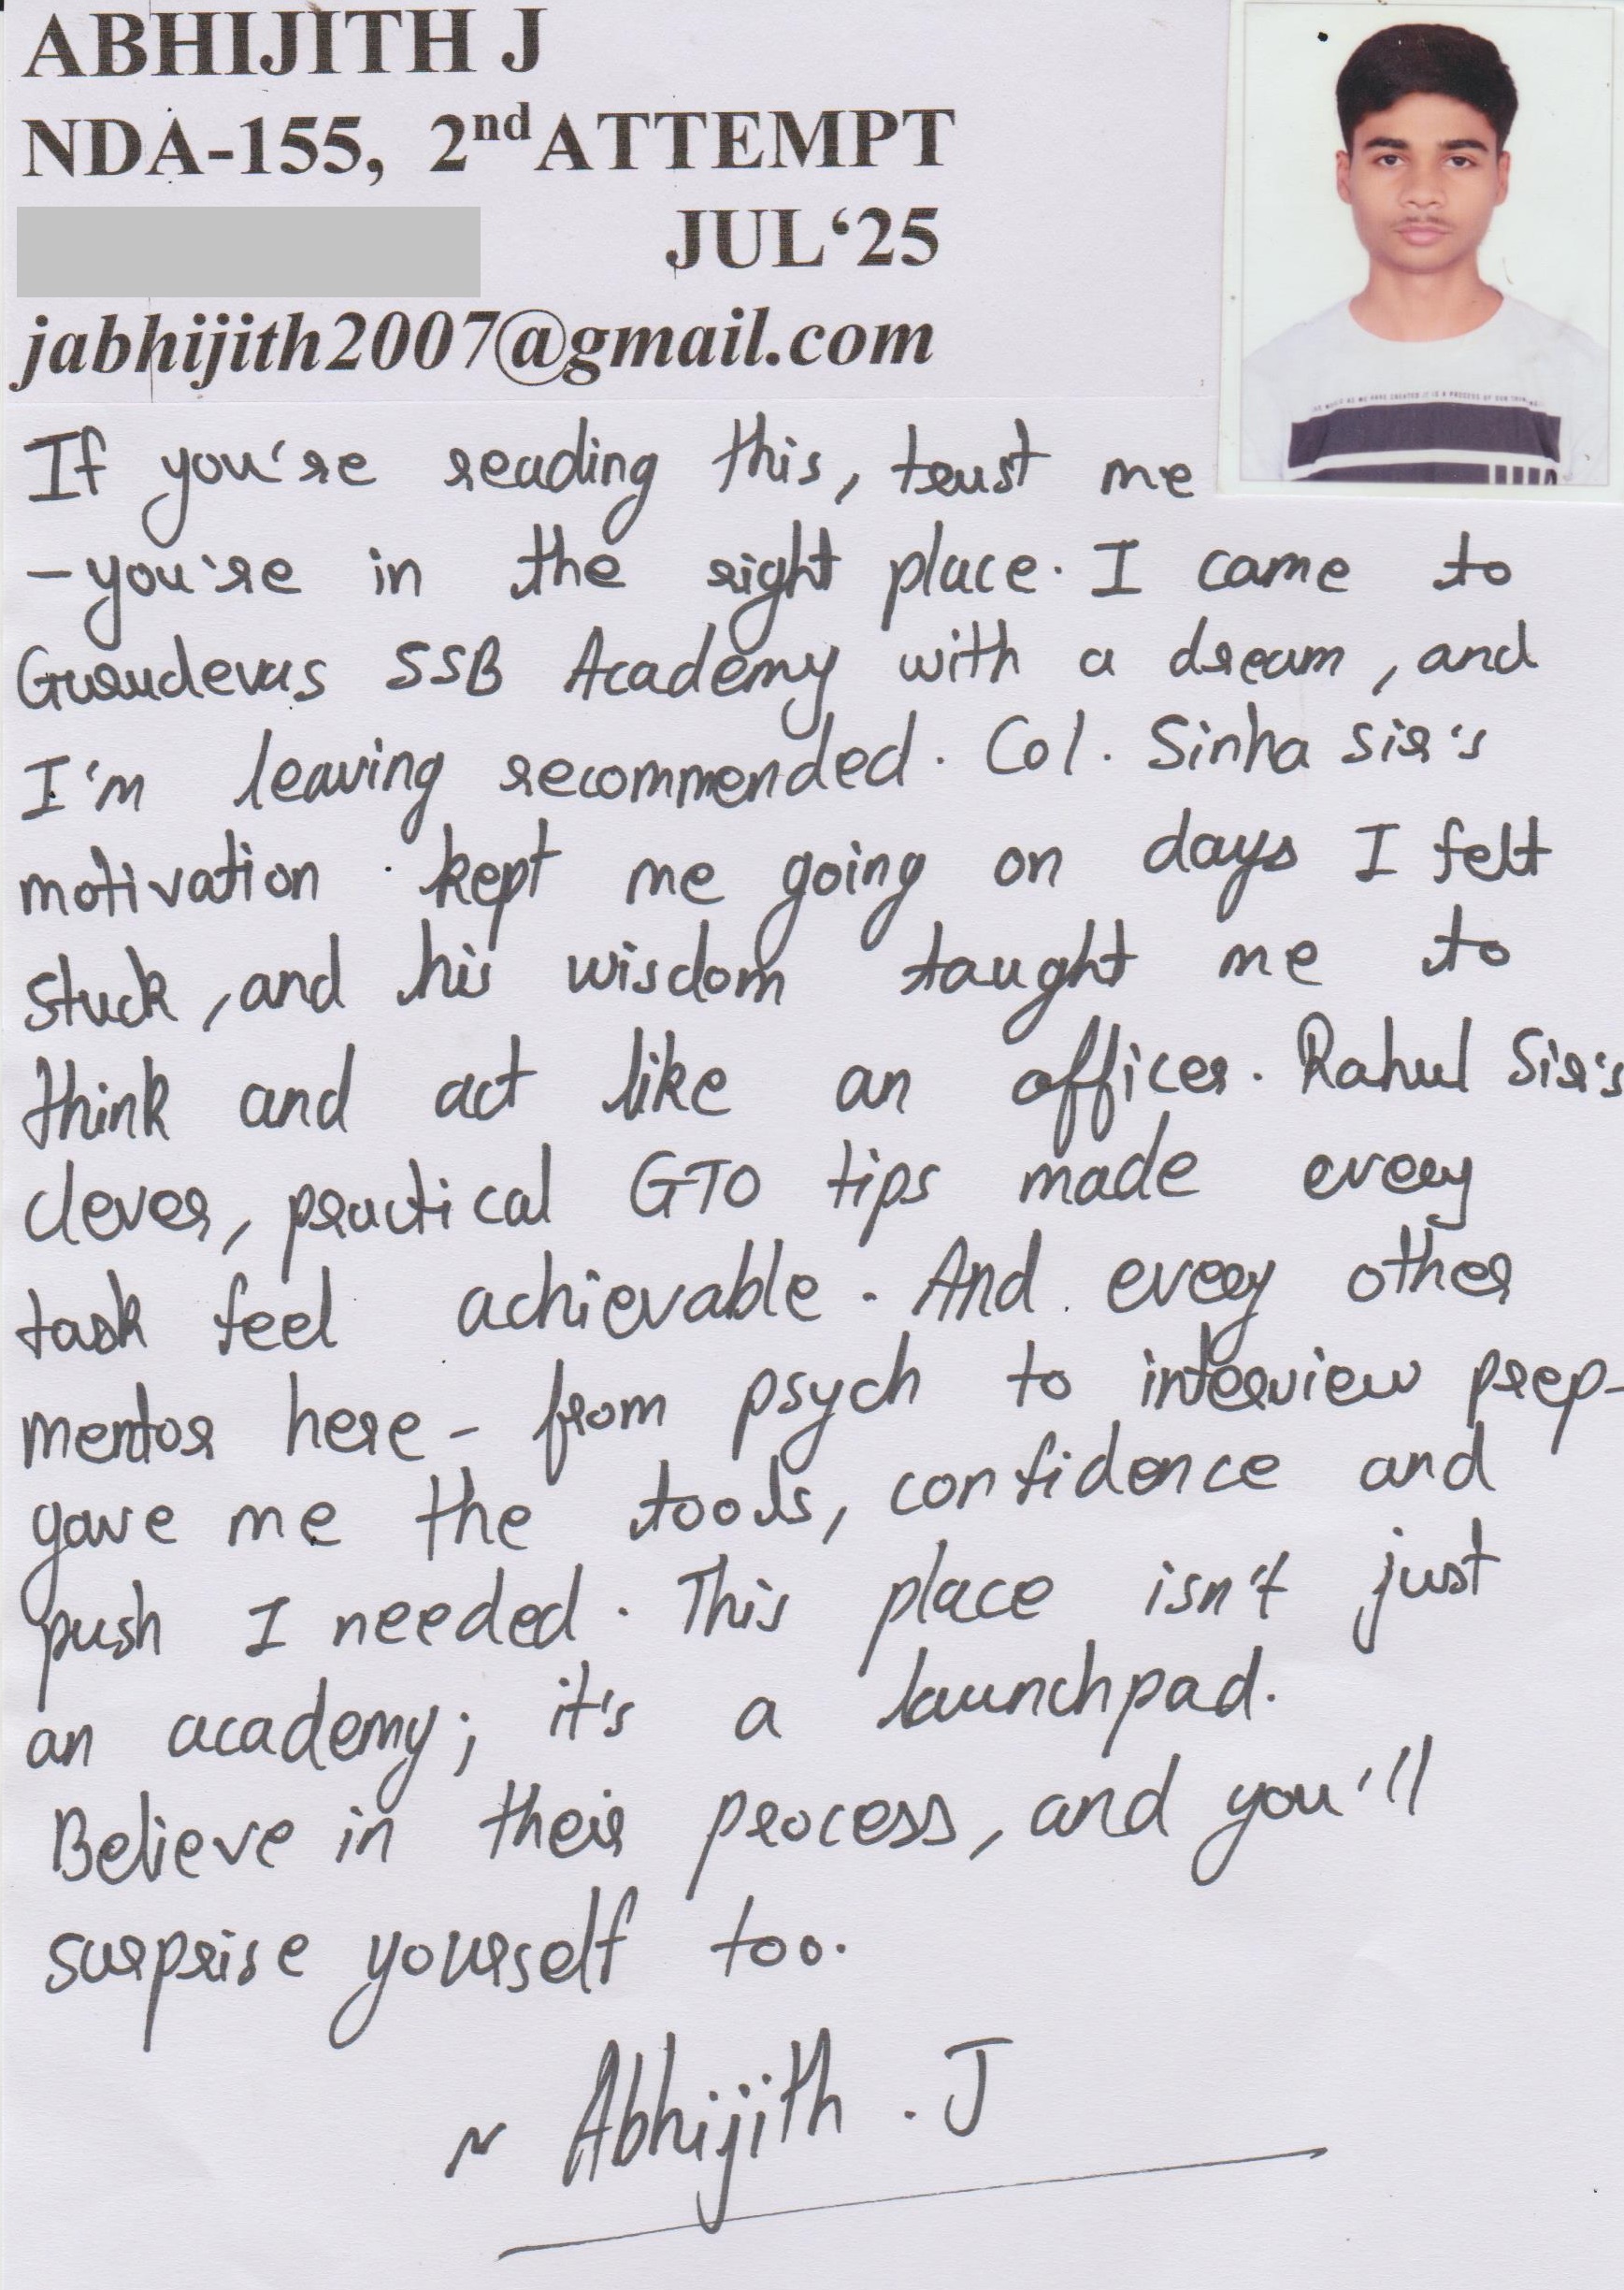 ABHIJITH J
NDA-155, 2nd ATTEMPT
JUL‘25
jabhijith2007@gmail.com
If you're reading this, trust me
- you're in the right place. I came to
Gurudevas SSB Academy with a dream, and
I'm leaving recommended. Col. Sinha sir's
motivation kept me going on days I felt
stuck, and his wisdom taught me to
think and act like an officer. Rahul Sir's
clever, practical GTO tips made every
task feel achievable. And every other
mentor here - from psych to interview prep-
gave me the tools, confidence and
push I needed. This place isn't just
an academy; it's a launchpad.
Believe in their process, and you'll
surprise yourself too.
~ Abhijith . J